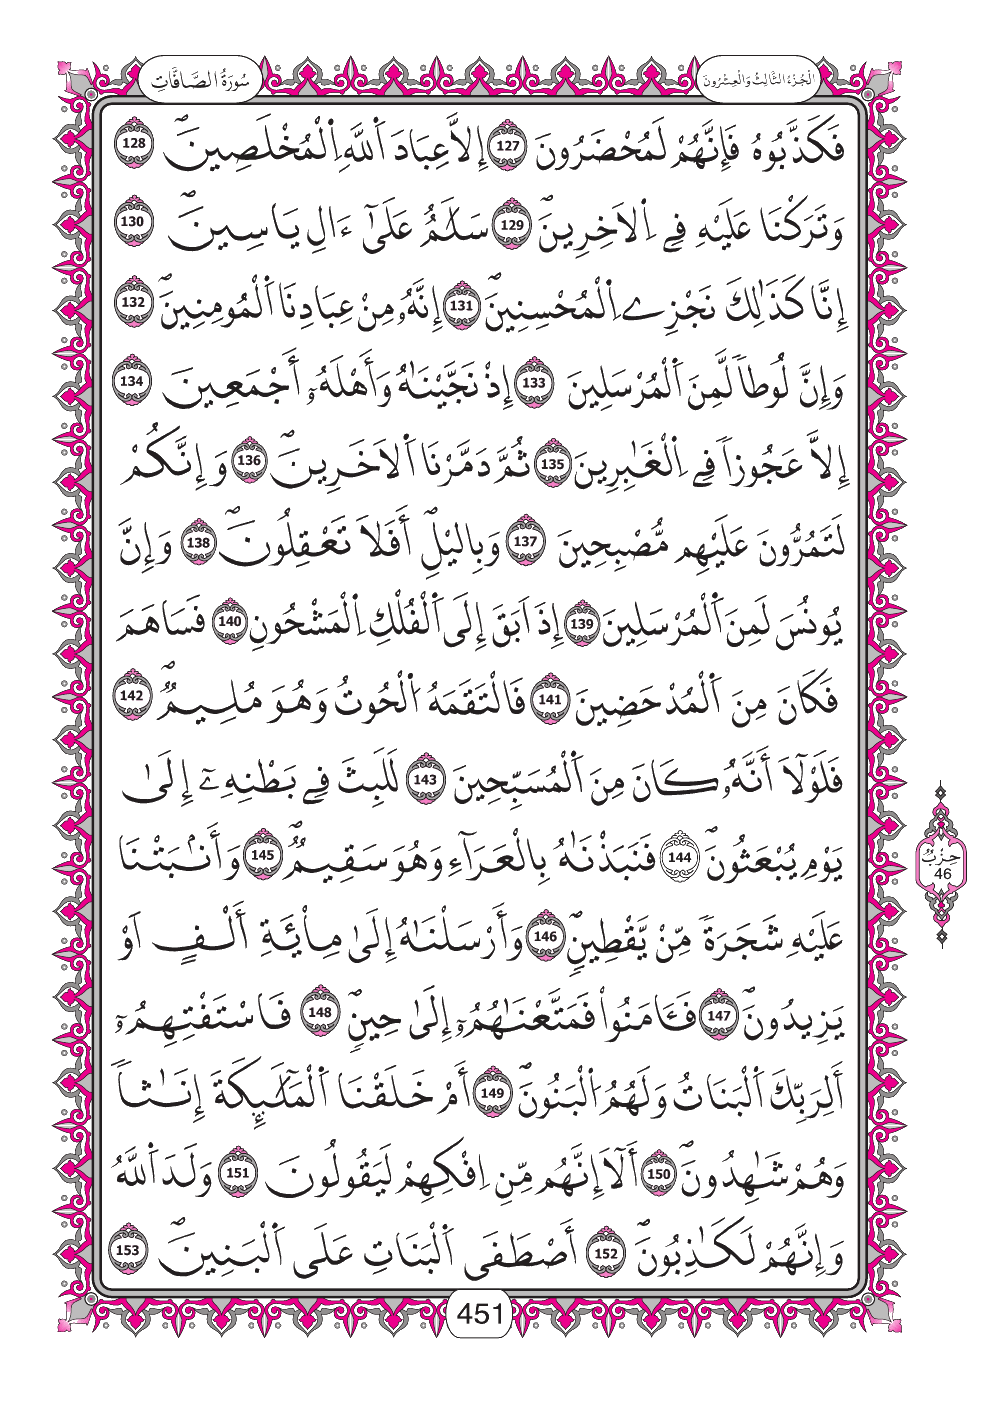 الجزء الثالث والعشرون
سورة الصافات
فَكَذَّبُوهُ فَإِنَّهُمْ لَمُحْضَرُونَ 127 إِلاَّ عِبَادَ اَ۬للَّهِ اِ۬لْمُخْلَصِينَۖ 128
وَتَرَكْنَا عَلَيْهِ فِے اِ۬لَاخِرِينَۖ 129 سَلَٰمٌ عَلَىٰٓ ءَالِ يَاسِينَۖ 130
إِنَّا كَذَٰلِكَ نَجْزِے اِ۬لْمُحْسِنِينَۖ 131 إِنَّهُۥ مِنْ عِبَادِنَا اَ۬لْمُومِنِينَۖ 132
وَإِنَّ لُوطاٗ لَّمِنَ اَ۬لْمُرْسَلِينَ 133 إِذْ نَجَّيْنَٰهُ وَأَهْلَهُۥٓ أَجْمَعِينَ 134
إِلاَّ عَجُوزاٗ فِے اِ۬لْغَٰبِرِينَ 135 ثُمَّ دَمَّرْنَا اَ۬لَاخَرِينَۖ 136 وَإِنَّكُمْ
لَتَمُرُّونَ عَلَيْهِم مُّصْبِحِينَ 137 وَبِاليْلِۖ أَفَلَا تَعْقِلُونَۖ 138 وَإِنَّ
يُونُسَ لَمِنَ اَ۬لْمُرْسَلِينَ 139 إِذَ اَبَقَ إِلَى اَ۬لْفُلْكِ اِ۬لْمَشْحُونِ 140 فَسَاهَمَ
فَكَانَ مِنَ اَ۬لْمُدْحَضِينَ 141 فَالْتَقَمَهُ اُ۬لْحُوتُ وَهُوَ مُلِيمٞۖ 142
فَلَوْلَآ أَنَّهُۥ كَانَ مِنَ اَ۬لْمُسَبِّحِينَ 143 لَلَبِثَ فِے بَطْنِهِۦٓ إِلَىٰ
يَوْمِ يُبْعَثُونَۖ 144 فَنَبَذْنَٰهُ بِالْعَرَآءِ وَهُوَ سَقِيمٞۖ 145 وَأَنۢبَتْنَا
عَلَيْهِ شَجَرَةٗ مِّنْ يَّقْطِينٖۖ 146 وَأَرْسَلْنَٰهُ إِلَىٰ مِاْئَةِ أَلْفٍ اَوْ
يَزِيدُونَۖ 147 فَـَٔامَنُواْ فَمَتَّعْنَٰهُمُۥٓ إِلَىٰ حِينٖۖ 148 فَاسْتَفْتِهِمُۥٓ
أَلِرَبِّكَ اَ۬لْبَنَاتُ وَلَهُمُ اُ۬لْبَنُونَۖ 149 أَمْ خَلَقْنَا اَ۬لْمَلَٰٓئِكَةَ إِنَٰثاٗ
وَهُمْ شَٰهِدُونَۖ 150 أَلَآ إِنَّهُم مِّنِ اِفْكِهِمْ لَيَقُولُونَ 151 وَلَدَ اَ۬للَّهُ
وَإِنَّهُمْ لَكَٰذِبُونَۖ 152 أَصْطَفَى اَ۬لْبَنَاتِ عَلَى اَ۬لْبَنِينَۖ 153
حزب
46
451